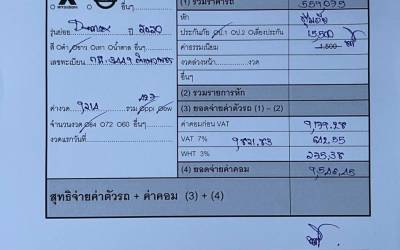 (1) รวมราคารถ 559,075
อื่นๆ หัก
รุ่นย่อย ปี 2020 ประกันภัย ป.1 ป.2 เลี่ยงประกัน 15,500
สี ดำ ขาว เทา น้ำตาล อื่นๆ ค่าธรรมเนียม 1,500
เลขทะเบียน งวดล่วงหน้า งวด
อื่นๆ
(2) รวมรายการหัก
ค่างวด 9214 รวม (3) ยอดจ่ายค่าตัวรถ (1) - (2)
จำนวนงวด 84 72 60 อื่นๆ ค่าคอมก่อน VAT 9,179.28
งวดแรกวันที่ VAT 7% 9,821.83 642.55
WHT 3% 275.38
(4) ยอดจ่ายค่าคอม 9,546.45
สุทธิจ่ายค่าตัวรถ + ค่าคอม (3) + (4)